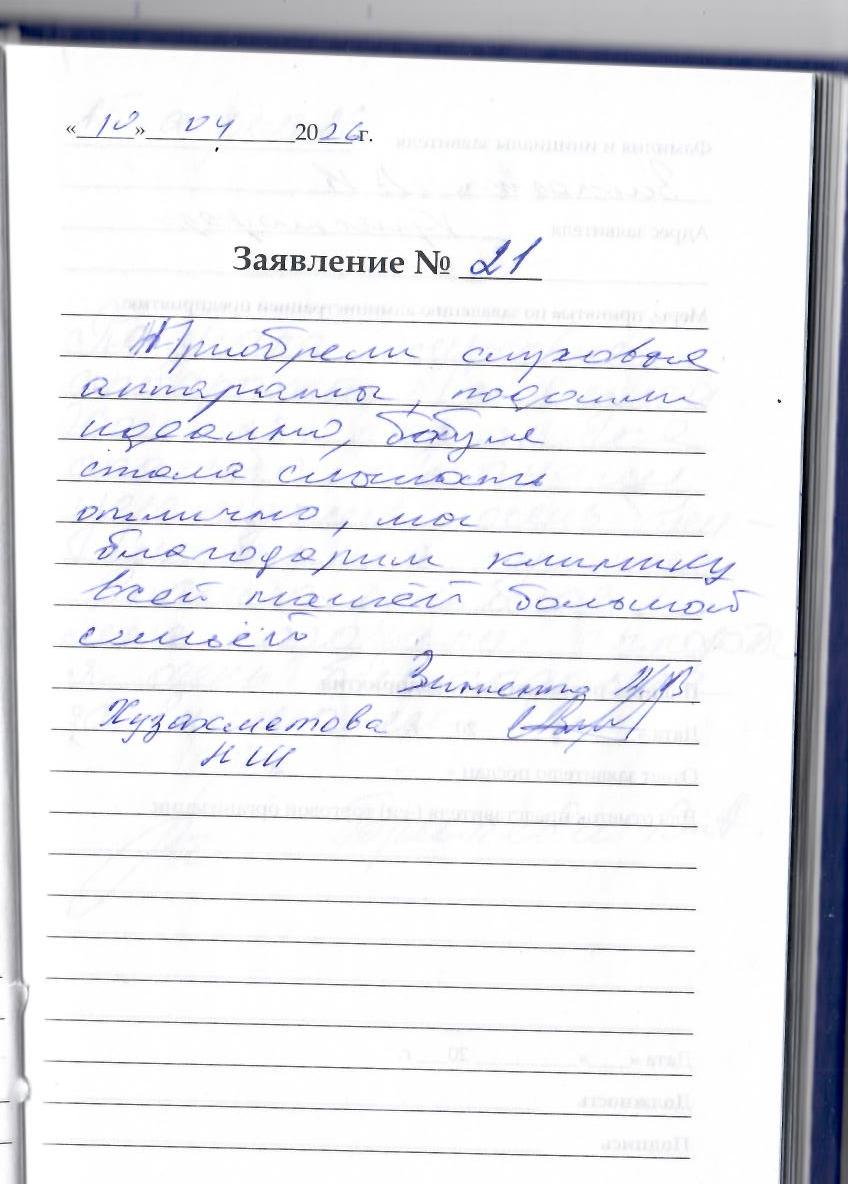 «10» 04 2026г.
Заявление № 21
Приобрели слуховые
аппараты, подошли
идеально, бабуля
стала слышать
отлично, мы
благодарим клинику
всей нашей большой
семьёй
Зинченко
Хузахметова
Н Ш